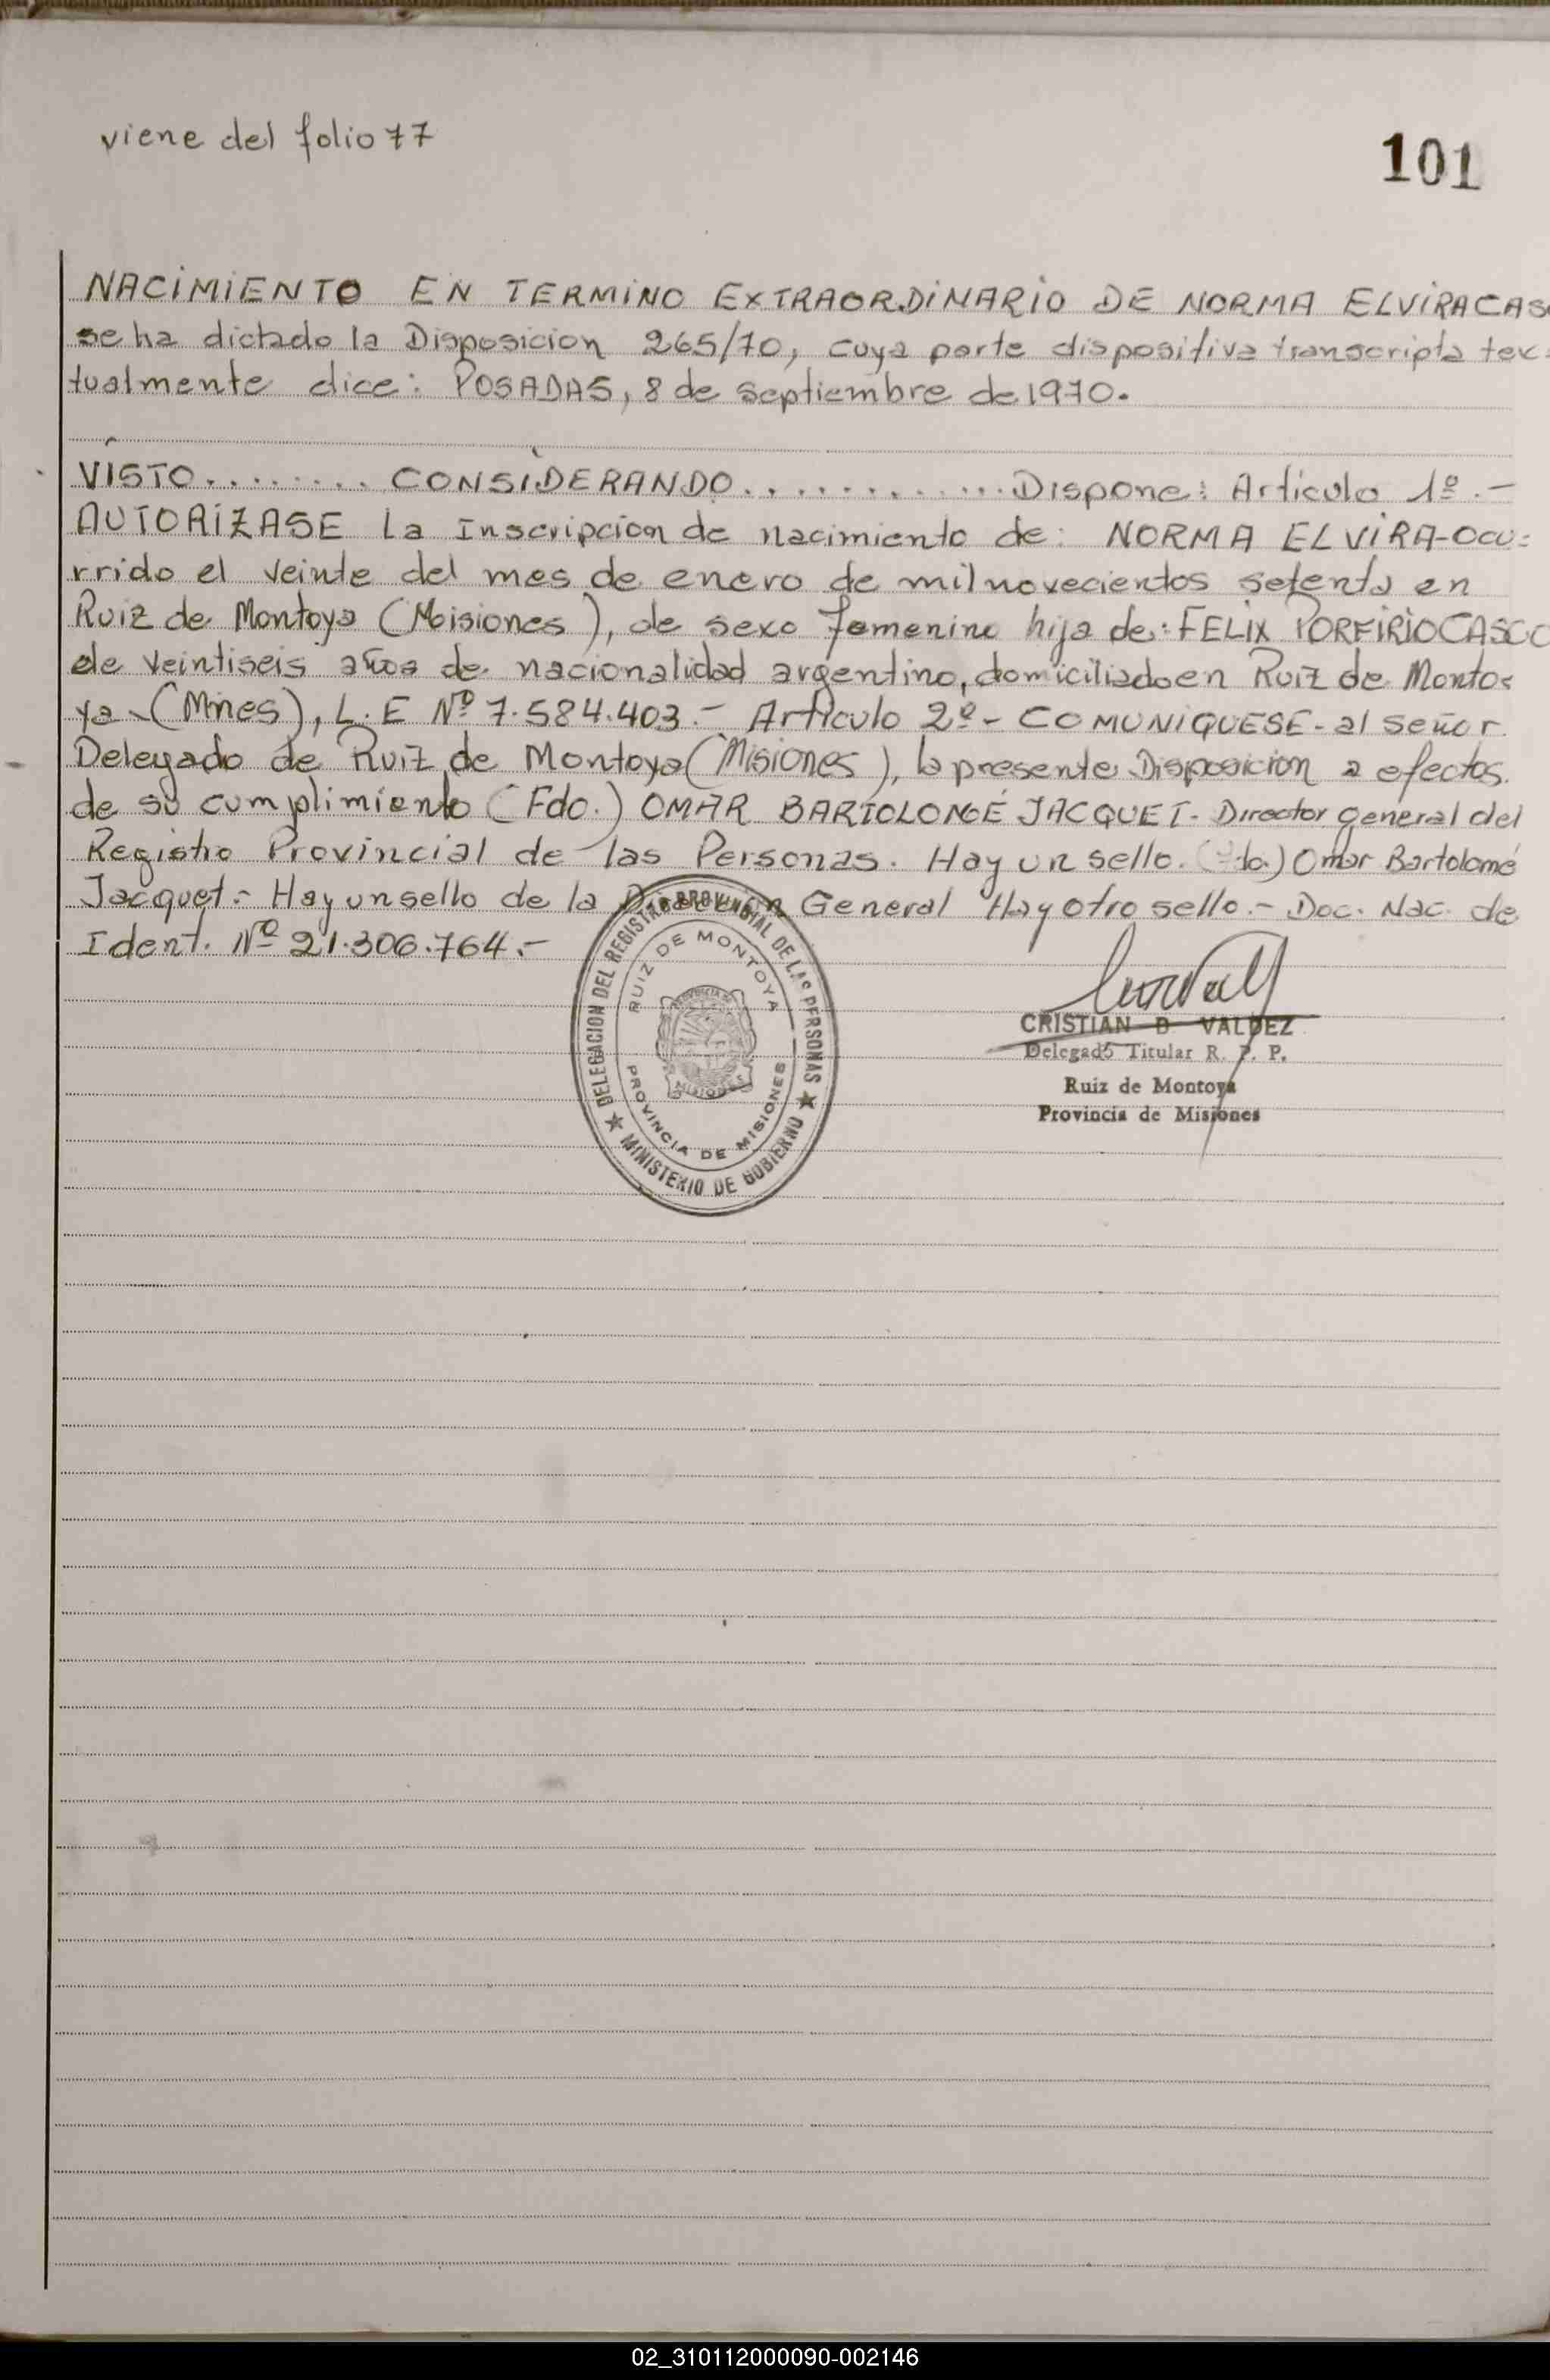 viene del folio 77
101
NACIMIENTO EN TERMINO EXTRAORDINARIO DE NORMA ELVIRA CAS
se ha dictado la Disposicion 265/70, cuya parte dispositiva transcripta tex=
tualmente dice: POSADAS, 8 de septiembre de 1970.
VISTO........ CONSIDERANDO............. Dispone: Articulo 1º.-
AUTORIZASE La Inscripcion de nacimiento de: NORMA ELVIRA-Ocu=
rrido el veinte del mes de enero de mil novecientos setenta en
Ruiz de Montoya (Misiones), de sexo femenino hija de: FELIX PORFIRIO CASCO
de veintiseis años de nacionalidad argentino, domiciliado en Ruiz de Monto-
ya (Mnes), L.E Nº 7.584.403.- Articulo 2º- COMUNIQUESE-al señor
Delegado de Ruiz de Montoya (Misiones), la presente Disposicion a efectos
de su cumplimiento (Fdo.) OMAR BARTOLOMÉ JACQUET- Director general del
Registro Provincial de las Personas. Hay un sello. (Fdo.) Omar Bartolomé
Jacquet.- Hay un sello de la Direccion General Hay otro sello.- Doc. Nac. de
Ident. Nº 21.306.764.-
DELEGACION DEL REGISTRO PROVINCIAL DE LAS PERSONAS
RUIZ DE MONTOYA
MISIONES
PROVINCIA DE MISIONES
MINISTERIO DE GOBIERNO
CRISTIAN D VALDEZ
Delegado Titular R. P. P.
Ruiz de Montoya
Provincia de Misiones
02_310112000090-002146